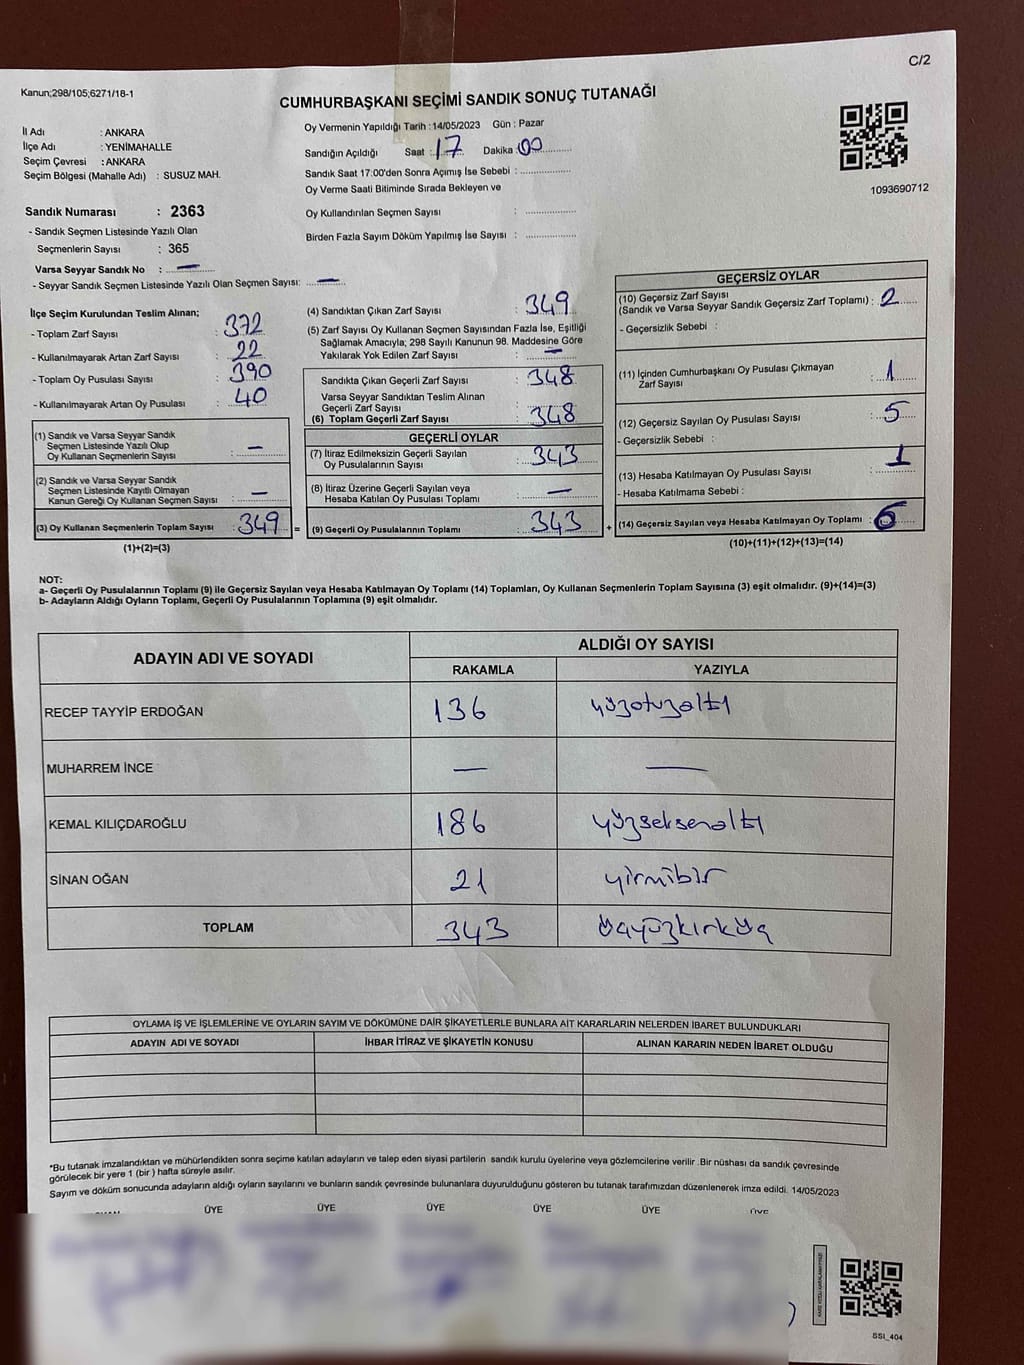 C/2
Kanun;298/105;6271/18-1
CUMHURBAŞKANI SEÇİMİ SANDIK SONUÇ TUTANAĞI
İl Adı : ANKARA
İlçe Adı : YENİMAHALLE
Seçim Çevresi : ANKARA
Seçim Bölgesi (Mahalle Adı) : SUSUZ MAH.
Oy Vermenin Yapıldığı Tarih :14/05/2023 Gün : Pazar
Sandığın Açıldığı Saat : 17 Dakika : 00
Sandık Saat 17:00'den Sonra Açımış İse Sebebi :
Oy Verme Saati Bitiminde Sırada Bekleyen ve
Oy Kullandırılan Seçmen Sayısı :
Birden Fazla Sayım Döküm Yapılmış İse Sayısı :
1093690712
Sandık Numarası : 2363
- Sandık Seçmen Listesinde Yazılı Olan
Seçmenlerin Sayısı : 365
Varsa Seyyar Sandık No : —
- Seyyar Sandık Seçmen Listesinde Yazılı Olan Seçmen Sayısı: —
İlçe Seçim Kurulundan Teslim Alınan;
- Toplam Zarf Sayısı : 372
- Kullanılmayarak Artan Zarf Sayısı : 22
- Toplam Oy Pusulası Sayısı : 390
- Kullanılmayarak Artan Oy Pusulası : 40
(1) Sandık ve Varsa Seyyar Sandık
Seçmen Listesinde Yazılı Olup
Oy Kullanan Seçmenlerin Sayısı : —
(2) Sandık ve Varsa Seyyar Sandık
Seçmen Listesinde Kayıtlı Olmayan
Kanun Gereği Oy Kullanan Seçmen Sayısı : —
(3) Oy Kullanan Seçmenlerin Toplam Sayısı : 349
(1)+(2)=(3)
(4) Sandıktan Çıkan Zarf Sayısı : 349
(5) Zarf Sayısı Oy Kullanan Seçmen Sayısından Fazla İse, Eşitliği
Sağlamak Amacıyla; 298 Sayılı Kanunun 98. Maddesine Göre
Yakılarak Yok Edilen Zarf Sayısı : —
Sandıkta Çıkan Geçerli Zarf Sayısı : 348
Varsa Seyyar Sandıktan Teslim Alınan
Geçerli Zarf Sayısı :
(6) Toplam Geçerli Zarf Sayısı : 348
GEÇERLİ OYLAR
(7) İtiraz Edilmeksizin Geçerli Sayılan
Oy Pusulalarının Sayısı : 343
(8) İtiraz Üzerine Geçerli Sayılan veya
Hesaba Katılan Oy Pusulası Toplamı : —
= (9) Geçerli Oy Pusulalarının Toplamı : 343
GEÇERSİZ OYLAR
(10) Geçersiz Zarf Sayısı
(Sandık ve Varsa Seyyar Sandık Geçersiz Zarf Toplamı) : 2
- Geçersizlik Sebebi :
(11) İçinden Cumhurbaşkanı Oy Pusulası Çıkmayan
Zarf Sayısı : 1
(12) Geçersiz Sayılan Oy Pusulası Sayısı : 5
- Geçersizlik Sebebi :
(13) Hesaba Katılmayan Oy Pusulası Sayısı : 1
- Hesaba Katılmama Sebebi :
+ (14) Geçersiz Sayılan veya Hesaba Katılmayan Oy Toplamı : 6
(10)+(11)+(12)+(13)=(14)
NOT:
a- Geçerli Oy Pusulalarının Toplamı (9) ile Geçersiz Sayılan veya Hesaba Katılmayan Oy Toplamı (14) Toplamları, Oy Kullanan Seçmenlerin Toplam Sayısına (3) eşit olmalıdır. (9)+(14)=(3)
b- Adayların Aldığı Oyların Toplamı, Geçerli Oy Pusulalarının Toplamına (9) eşit olmalıdır.
ADAYIN ADI VE SOYADI
ALDIĞI OY SAYISI
RAKAMLA YAZIYLA
RECEP TAYYİP ERDOĞAN 136 yüzotuzaltı
MUHARREM İNCE — —
KEMAL KILIÇDAROĞLU 186 yüzseksenaltı
SİNAN OĞAN 21 yirmibir
TOPLAM 343 üçyüzkırküç
OYLAMA İŞ VE İŞLEMLERİNE VE OYLARIN SAYIM VE DÖKÜMÜNE DAİR ŞİKAYETLERLE BUNLARA AİT KARARLARIN NELERDEN İBARET BULUNDUKLARI
ADAYIN ADI VE SOYADI İHBAR İTİRAZ VE ŞİKAYETİN KONUSU ALINAN KARARIN NEDEN İBARET OLDUĞU
*Bu tutanak imzalandıktan ve mühürlendikten sonra seçime katılan adayların ve talep eden siyasi partilerin sandık kurulu üyelerine veya gözlemcilerine verilir .Bir nüshası da sandık çevresinde
görülecek bir yere 1 (bir ) hafta süreyle asılır.
Sayım ve döküm sonucunda adayların aldığı oyların sayılarını ve bunların sandık çevresinde bulunanlara duyurulduğunu gösteren bu tutanak tarafımızdan düzenlenerek imza edildi. 14/05/2023
ÜYE ÜYE ÜYE ÜYE ÜYE ÜYE
SSI_404